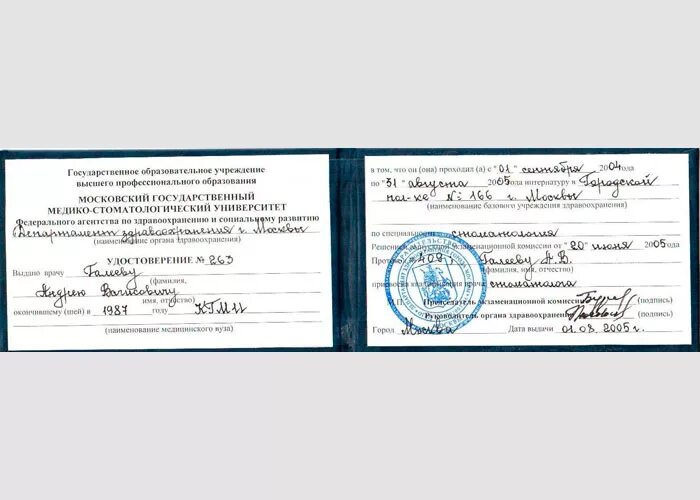 Государственное образовательное учреждение
высшего профессионального образования
МОСКОВСКИЙ ГОСУДАРСТВЕННЫЙ
МЕДИКО-СТОМАТОЛОГИЧЕСКИЙ УНИВЕРСИТЕТ
Федерального агентства по здравоохранению и социальному развитию
Департамент здравоохранения г. Москвы
(наименование органа здравоохранения)
УДОСТОВЕРЕНИЕ № 263
Выдано врачу Галееву
(фамилия,
Андрею Вагисовичу
имя, отчество)
окончившему (шей) в 1987 году КГМИ
(наименование медицинского вуза)
в том, что он (она) проходил (а) с "01" сентября 2004года
по "31" августа 2005года интернатуру в Городской
пол-ке № 166 г. Москвы
(наименование базового учреждения здравоохранения)
по специальности стоматология
Решением выпускной экзаменационной комиссии от "20" июня 2005года
Протокол 408, Галееву А.В.
(фамилия, имя, отчество)
присвоена квалификация врача стоматолога
М.П. Председатель экзаменационной комиссии (подпись)
Руководитель органа здравоохранения (подпись)
Город Москва Дата выдачи 01.08.2005г.